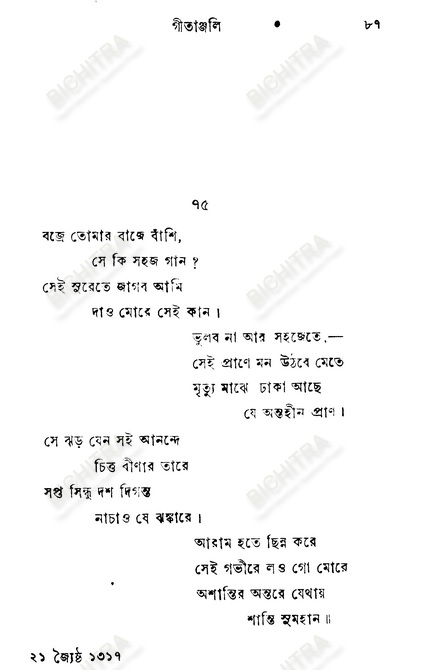 গীতাঞ্জলি • ৮৭
৭৫
বজ্রে তোমার বাজে বাঁশি,
সে কি সহজ গান ?
সেই সুরেতে জাগব আমি
দাও মোরে সেই কান ।
ভুলব না আর সহজেতে,—
সেই প্রাণে মন উঠবে মেতে
মৃত্যু মাঝে ঢাকা আছে
যে অন্তহীন প্রাণ ।
সে ঝড় যেন সই আনন্দে
চিত্ত বীণার তারে
সপ্ত সিন্ধু দশ দিগন্ত
নাচাও যে ঝঙ্কারে ।
আরাম হতে ছিন্ন করে
সেই গভীরে লও গো মোরে
অশান্তির অন্তরে যেথায়
শান্তি সুমহান ॥
২১ জ্যৈষ্ঠ ১৩১৭
BICHITRA
BICHITRA
BICHITRA
BICHITRA
BICHITRA
BICHITRA
BICHITRA
BICHITRA